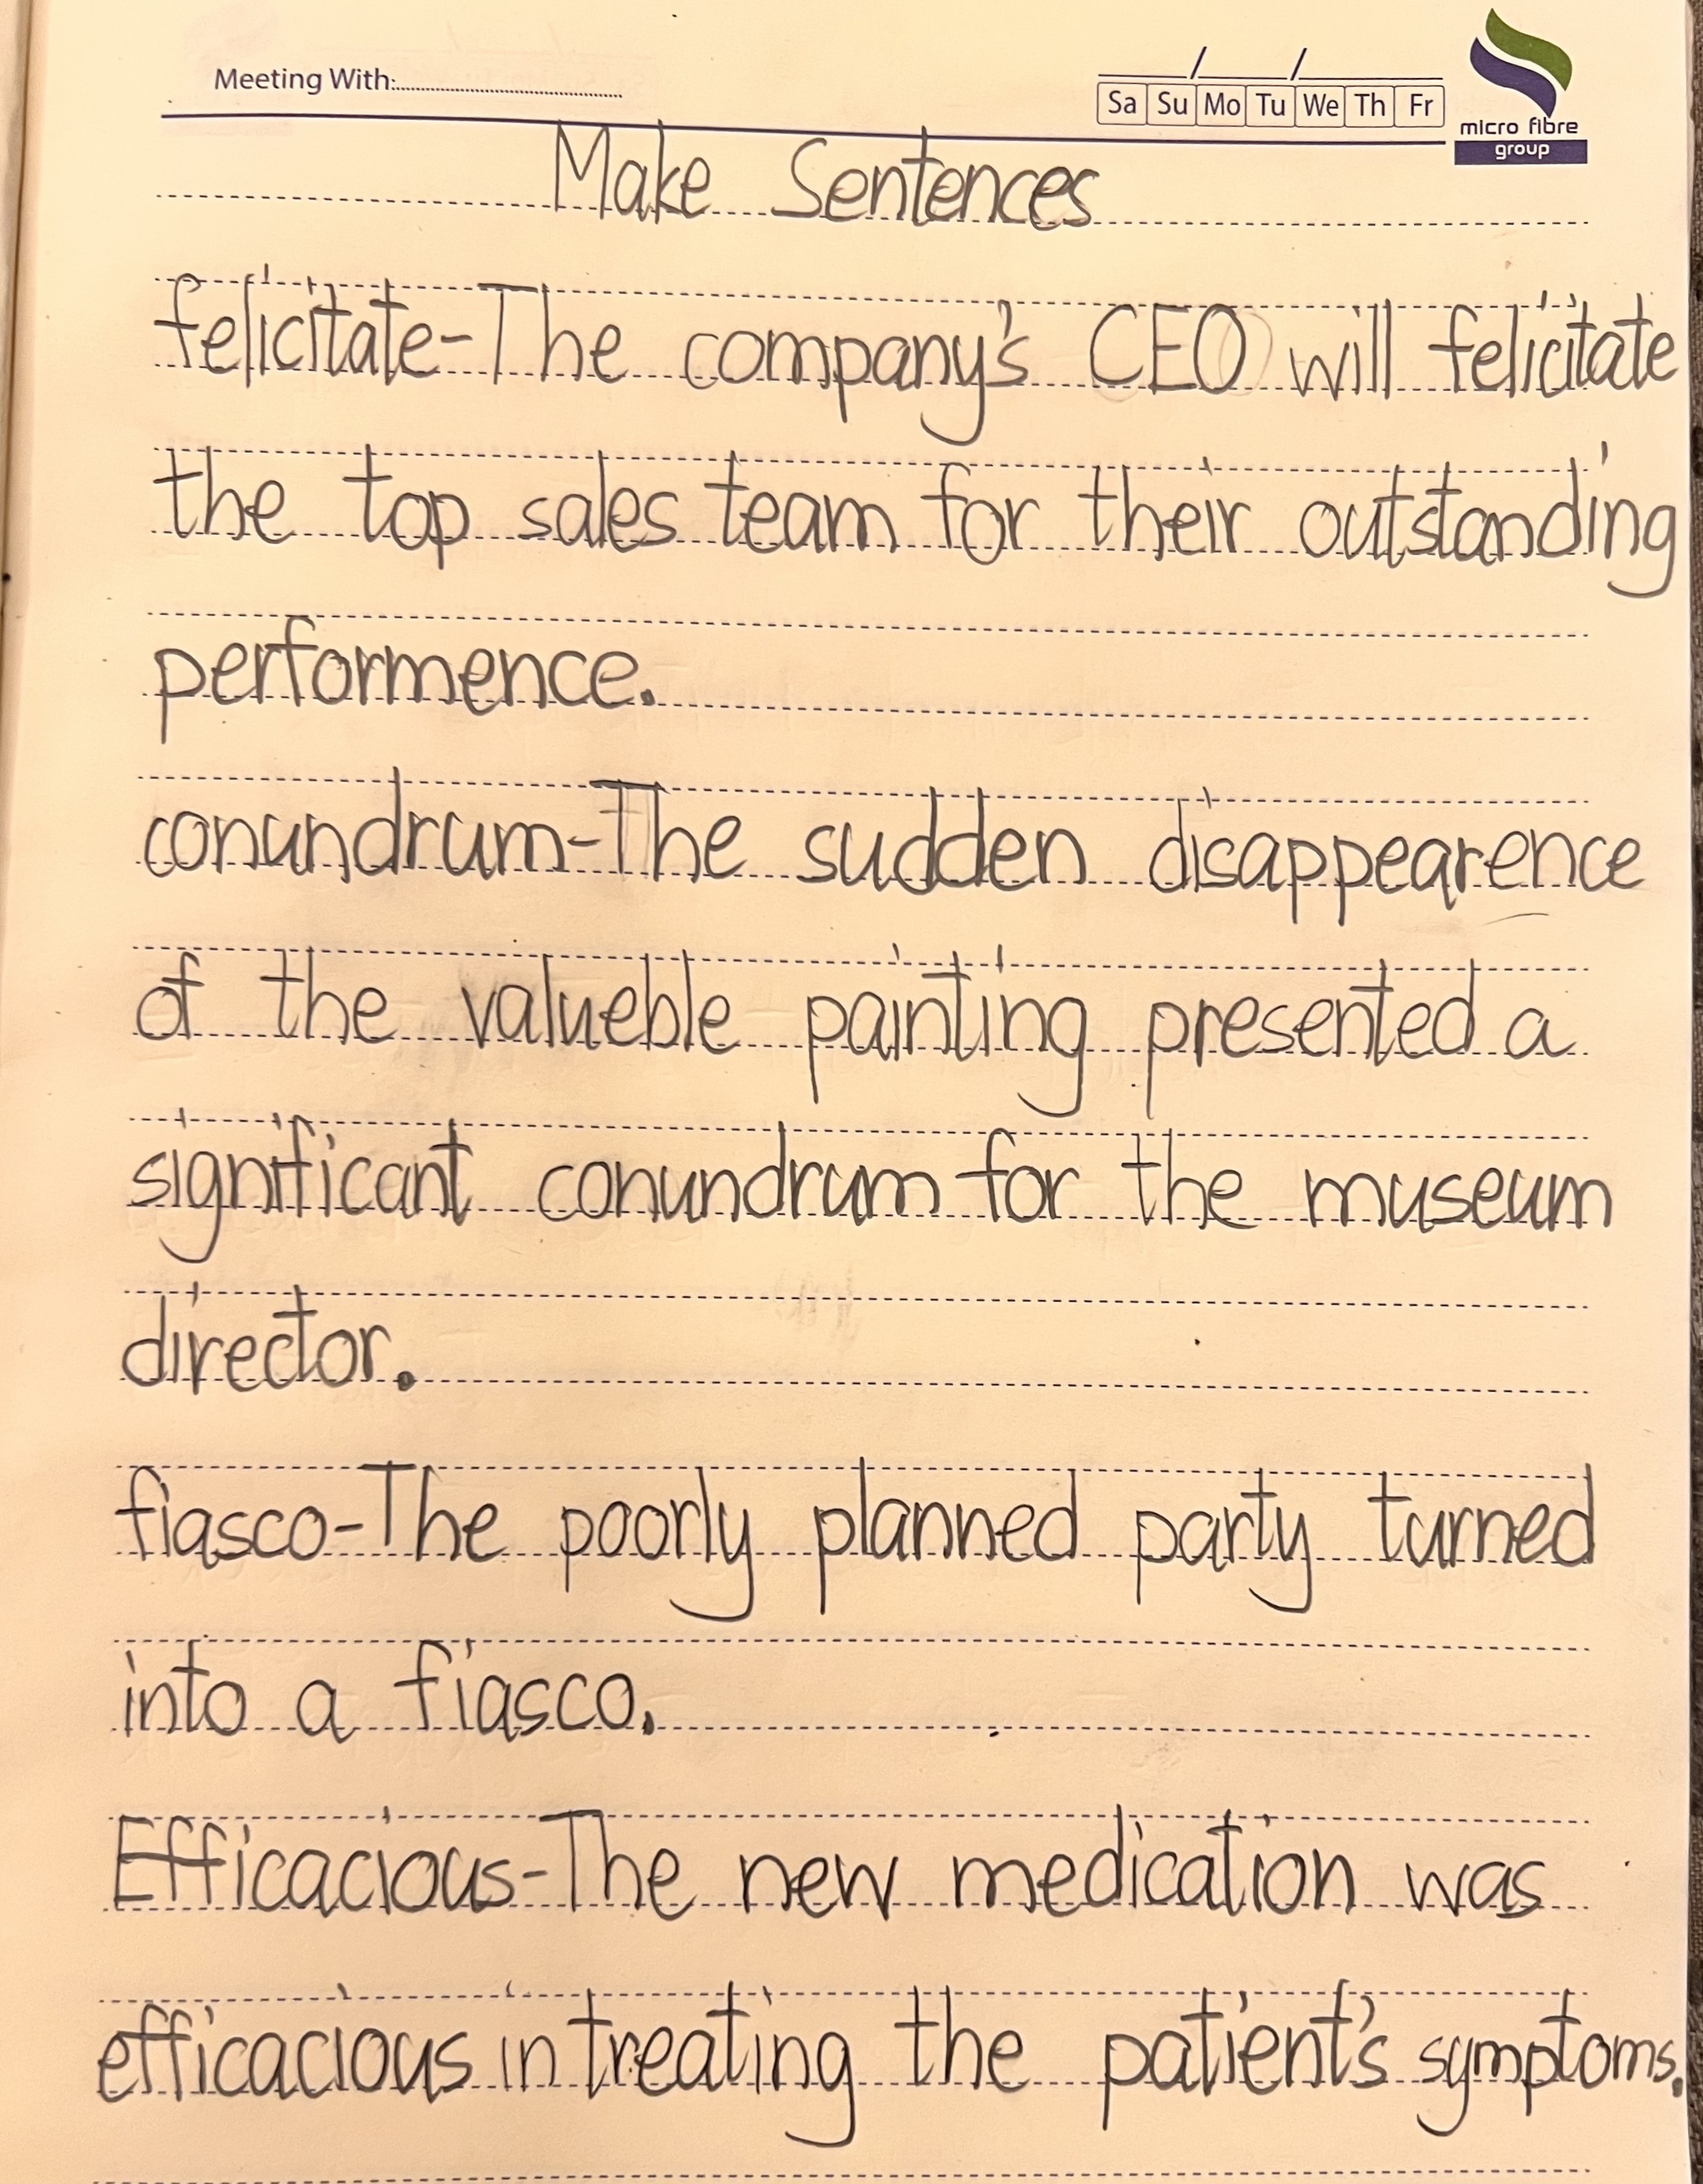 Meeting With:
/ /
Sa Su Mo Tu We Th Fr
micro fibre
group
Make Sentences
felicitate-The company's CEO will felicitate
the top sales team for their outstanding
performence.
conundrum-The sudden disappearence
of the valueble painting presented a
significant conundrum for the museum
director.
fiasco-The poorly planned party turned
into a fiasco.
Efficacious-The new medication was
efficacious in treating the patient's symptoms.